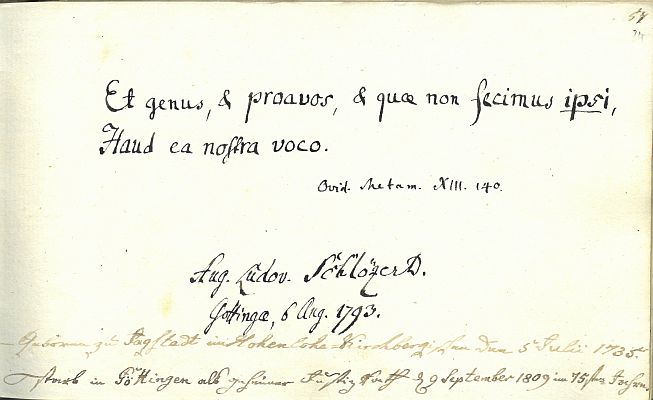 57
Et genus, & proavos, & quæ non fecimus ipsi,
Haud ea nostra voco.
Ovid. Metam. XIII. 140.
Aug. Ludov. Schlözer D.
Gottingæ, 6 Aug. 1793.
Geboren zu Jagstadt im Hohenlohe-Kirchbergischen den 5 Julii 1735.
starb in Göttingen als geheimer Justizrath d 9 September 1809 im 75sten Jahre.